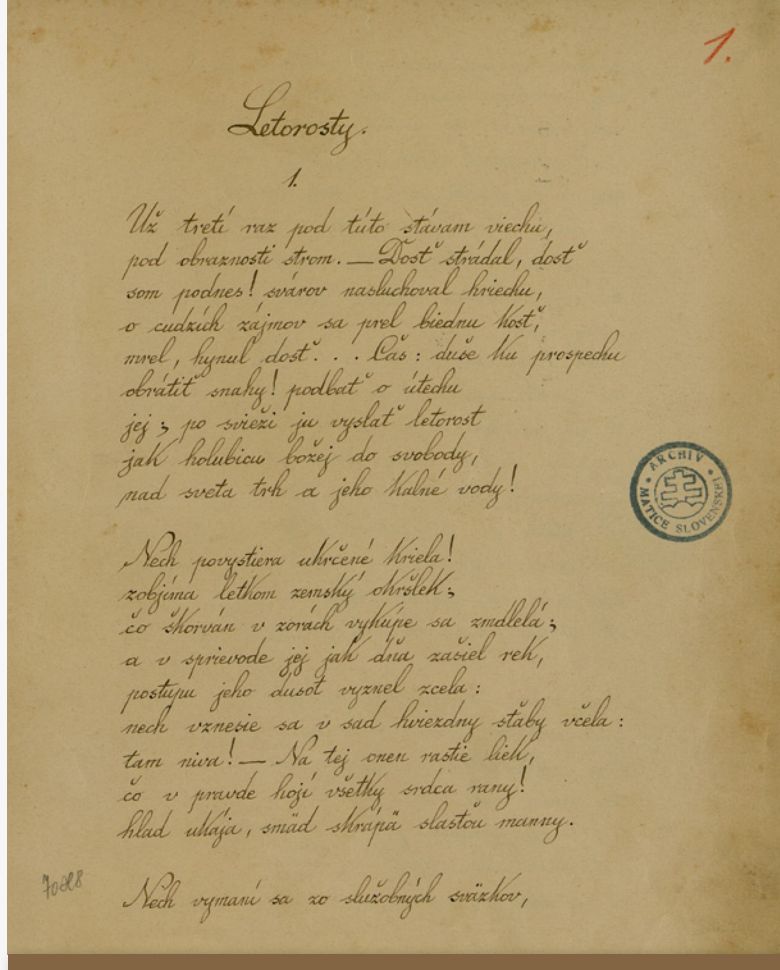 1.
Letorosty.
1.
Už tretí raz pod túto stávam viechu,
pod obraznosti strom. — Dosť strádal, dosť
som podnes! svárov nasluchoval hriechu,
o cudzích zájmov sa prel biednu kosť,
mrel, hynul dosť... Čas: duše ku prospechu
obrátiť snahy! podbať o útechu
jej; po svieži ju vyslať letorost
jak holubicu božej do svobody,
nad sveta trh a jeho kalné vody!
Nech povystiera ukrčené kriela!
zobjíma letkom zemský okršlek;
čo škorván v zorách vykúpe sa zmdlelá;
a v sprievode jej jak dňa zašiel rek,
postupu jeho dusot vyznel zcela:
nech vznesie sa v sad hviezdny sťaby včela:
tam niva! — Na tej onen rastie liek,
čo v pravde hojí všetky srdca rany!
hlad ukája, smäd skrápä slasťou manny.
Nech vymaní sa zo služobných sväzkov,
ARCHIV MATICE SLOVENSKEJ